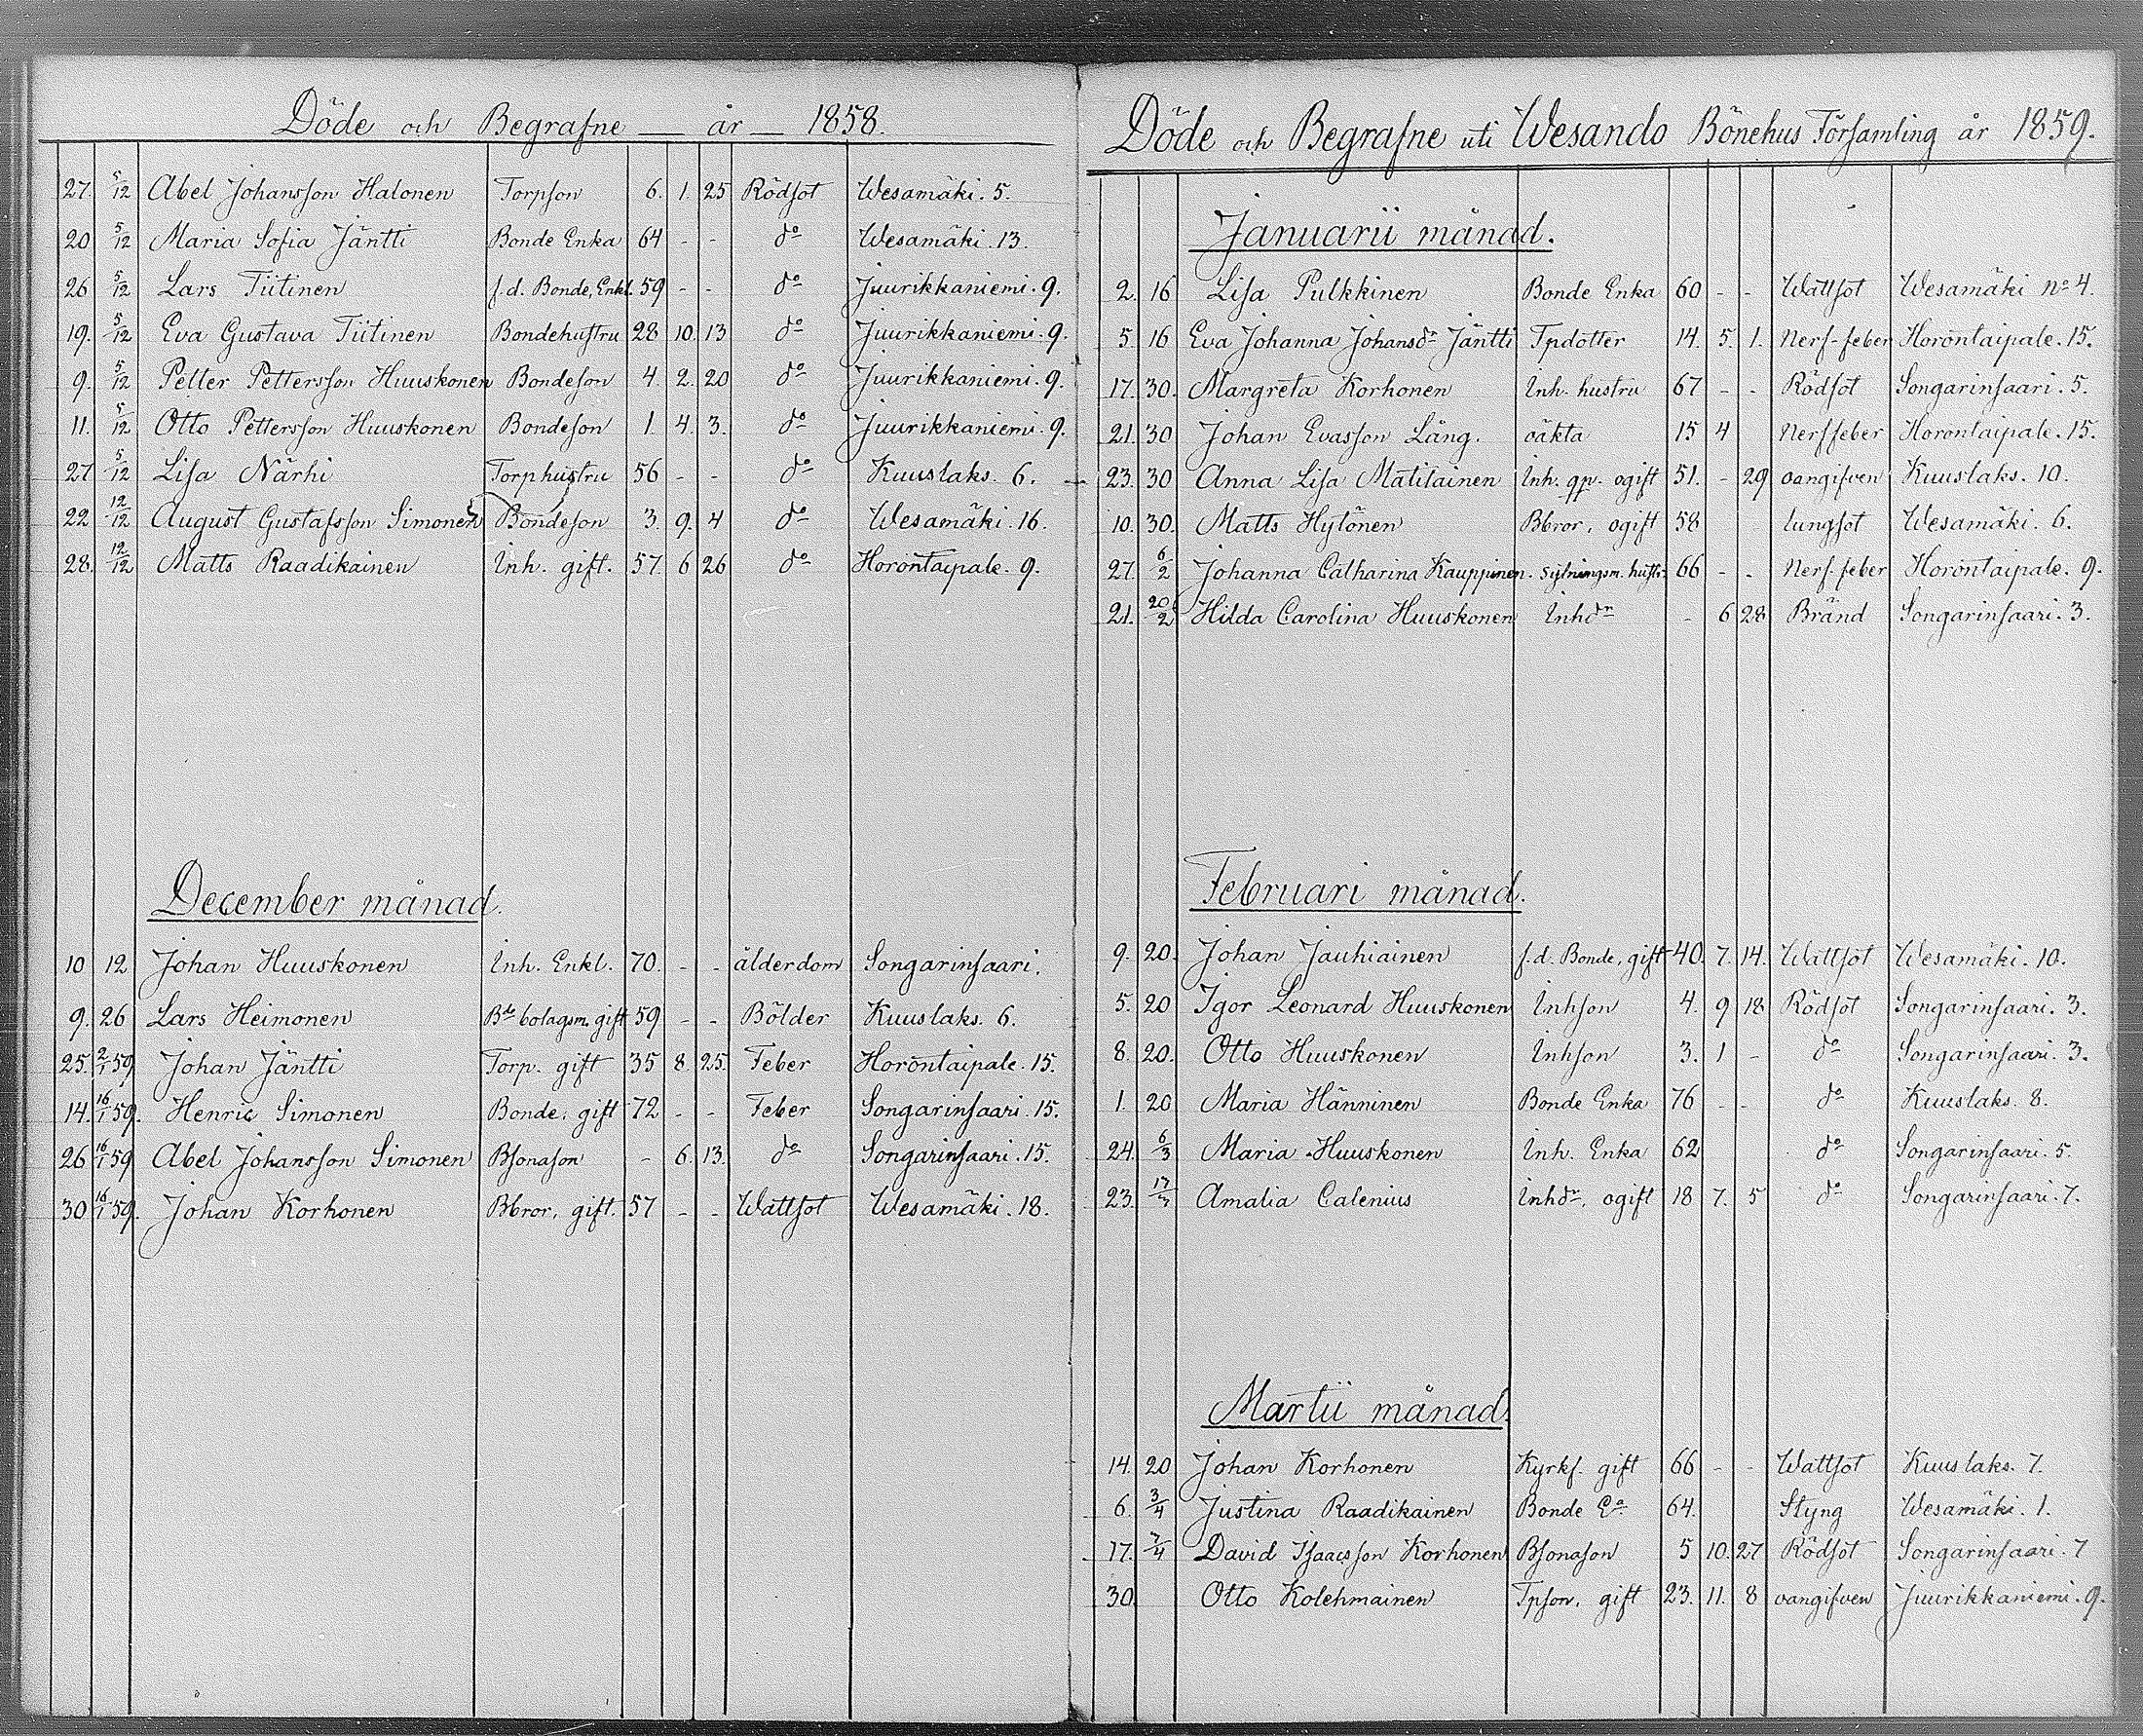 Döde och Begrafne — år — 1858.
27. 5/12 Abel Johansson Halonen Torpson 6. 1. 25 Rödsot Wesamäki. 5.
20 5/12 Maria Sofia Jäntti Bonde Enka 64 - - do Wesamäki. 13.
26 5/12 Lars Tiitinen f.d. Bonde, Enkl. 59 - - do Juurikkaniemi. 9.
19. 5/12 Eva Gustava Tiitinen Bondehustru 28 10. 13 do Juurikkaniemi. 9.
9. 5/12 Petter Pettersson Huuskonen Bondeson 4. 2. 20 do Juurikkaniemi. 9.
11. 5/12 Otto Pettersson Huuskonen Bondeson 1. 4. 3. do Juurikkaniemi. 9.
27 5/12 Lisa Närhi Torphustru 56 - - do Kuuslaks. 6.
22 12/12 August Gustafsson Simonen Bondeson 3. 9. 4 do Wesamäki. 16.
28. 12/12 Matts Raadikainen Inh. gift. 57. 6 26 do Horontaipale. 9.
December månad.
10 12 Johan Huuskonen Inh. Enkl. 70. - - ålderdom Songarinsaari.
9. 26 Lars Heimonen Bde bolagsm. gift 59 - - Bölder Kuuslaks. 6.
25. 2/1 59 Johan Jäntti Torp. gift 35 8. 25. Feber Horontaipale. 15.
14. 16/1 59. Henric Simonen Bonde, gift 72 - - Feber Songarinsaari. 15.
26 16/1 59 Abel Johansson Simonen Bsonason - 6. 13. do Songarinsaari. 15.
30 16/1 59. Johan Korhonen Bbror, gift. 57 - - Wattsot Wesamäki. 18.
Döde och Begrafne uti Wesando Bönehus Församling år 1859.
Januarii månad.
2. 16 Lisa Pulkkinen Bonde Enka 60 - - Wattsot Wesamäki no 4.
5. 16 Eva Johanna Johansdr Jäntti Tpdotter 14. 5. 1. Nerf-feber Horontaipale. 15.
17. 30. Margreta Korhonen Inh. hustru 67 - - Rödsot Songarinsaari. 5.
21. 30 Johan Evasson Lång. oäkta 15 4 Nerffeber Horontaipale. 15.
23. 30 Anna Lisa Matilainen Inh. qp. ogift 51. - 29 oangifven Kuuslaks. 10.
10. 30. Matts Hytönen Bbror, ogift 58 lungsot Wesamäki. 6.
27. 6/2 Johanna Catharina Kauppinen. Sytningsm. hustr. 66 - - Nerf. feber Horontaipale. 9.
21. 20/2 Hilda Carolina Huuskonen Inhdr - 6 28 Bränd Songarinsaari. 3.
Februari månad.
9. 20. Johan Jauhiainen f.d. Bonde, gift 40. 7. 14. Wattsot Wesamäki. 10.
5. 20 Igor Leonard Huuskonen Inhson 4. 9 18 Rödsot Songarinsaari. 3.
8. 20. Otto Huuskonen Inhson 3. 1 - do Songarinsaari. 3.
1. 20 Maria Hänninen Bonde Enka 76 - - do Kuuslaks. 8.
24. 6/3 Maria Huuskonen Inh. Enka 62 do Songarinsaari. 5.
23. 17/3 Amalia Calenius Inhdr, ogift 18 7. 5 do Songarinsaari. 7.
Martii månad.
14. 20 Johan Korhonen Kyrkf. gift 66 - - Wattsot Kuuslaks. 7.
6. 3/4 Justina Raadikainen Bonde Ea 64. Styng Wesamäki. 1.
17. 7/4 David Isaacsson Korhonen Bsonason 5 10. 27 Rödsot Songarinsaari. 7
30. Otto Kolehmainen Tpson, gift 23. 11. 8 oangifven Juurikkaniemi. 9.